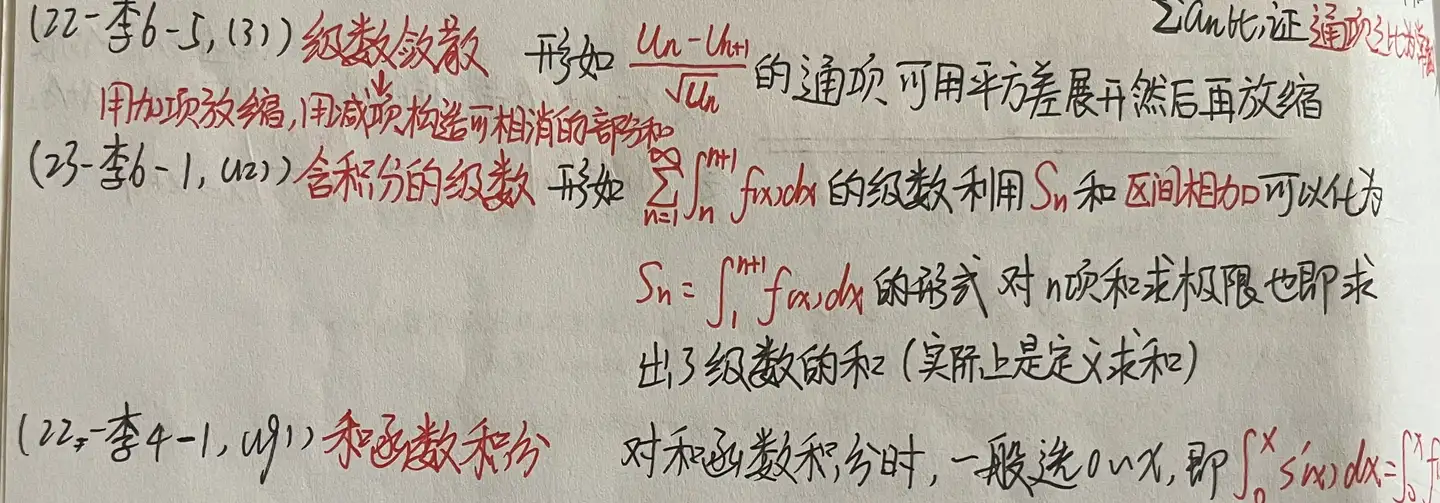 Σan比,证通项之比为
(22-李6-5,(3)) 级数敛散 形如 (Un-Un+1)/√Un 的通项可用平方差展开然后再放缩
用加项放缩,用减项构造可相消的部分和
(23-李6-1,(12)) 含积分的级数 形如 ∑_{n=1}^{∞}∫_n^{n+1} f(x)dx 的级数利用Sn和区间相加可以化为
Sn=∫_1^{n+1} f(x)dx 的形式 对n项和求极限也即求
出了级数的和(实际上是定义求和)
(22-李4-1,(19)) 和函数积分 对和函数积分时,一般选0~x,即∫_0^x S'(x)dx=∫_0^x f